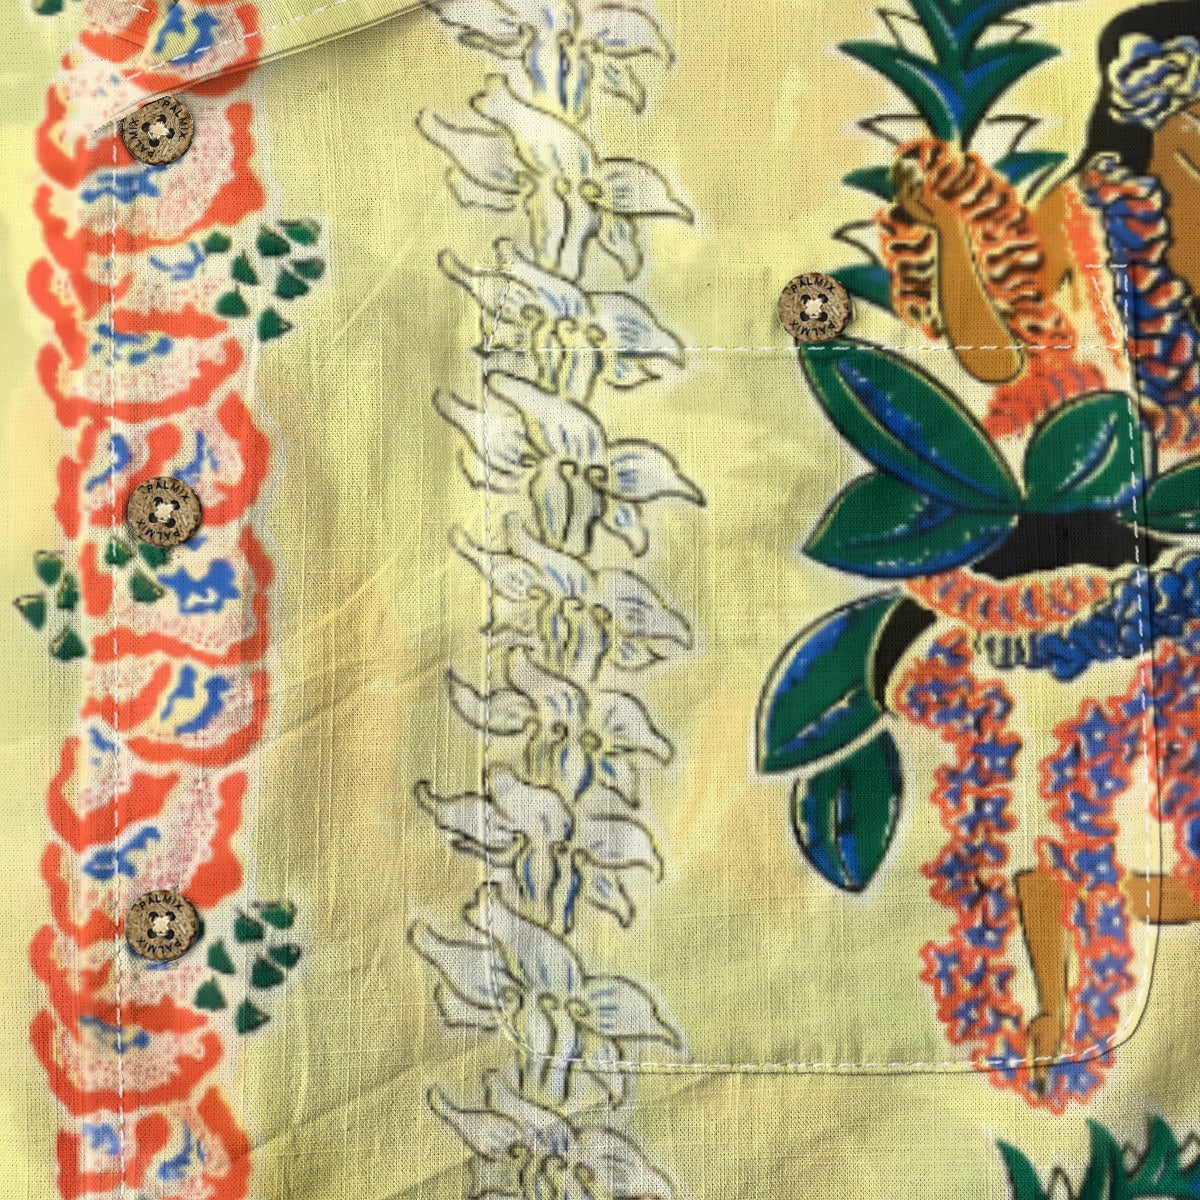 PALMIX
PALMIX
PALMIX
PALMIX
PALMIX
PALMIX
PALMIX
PALMIX